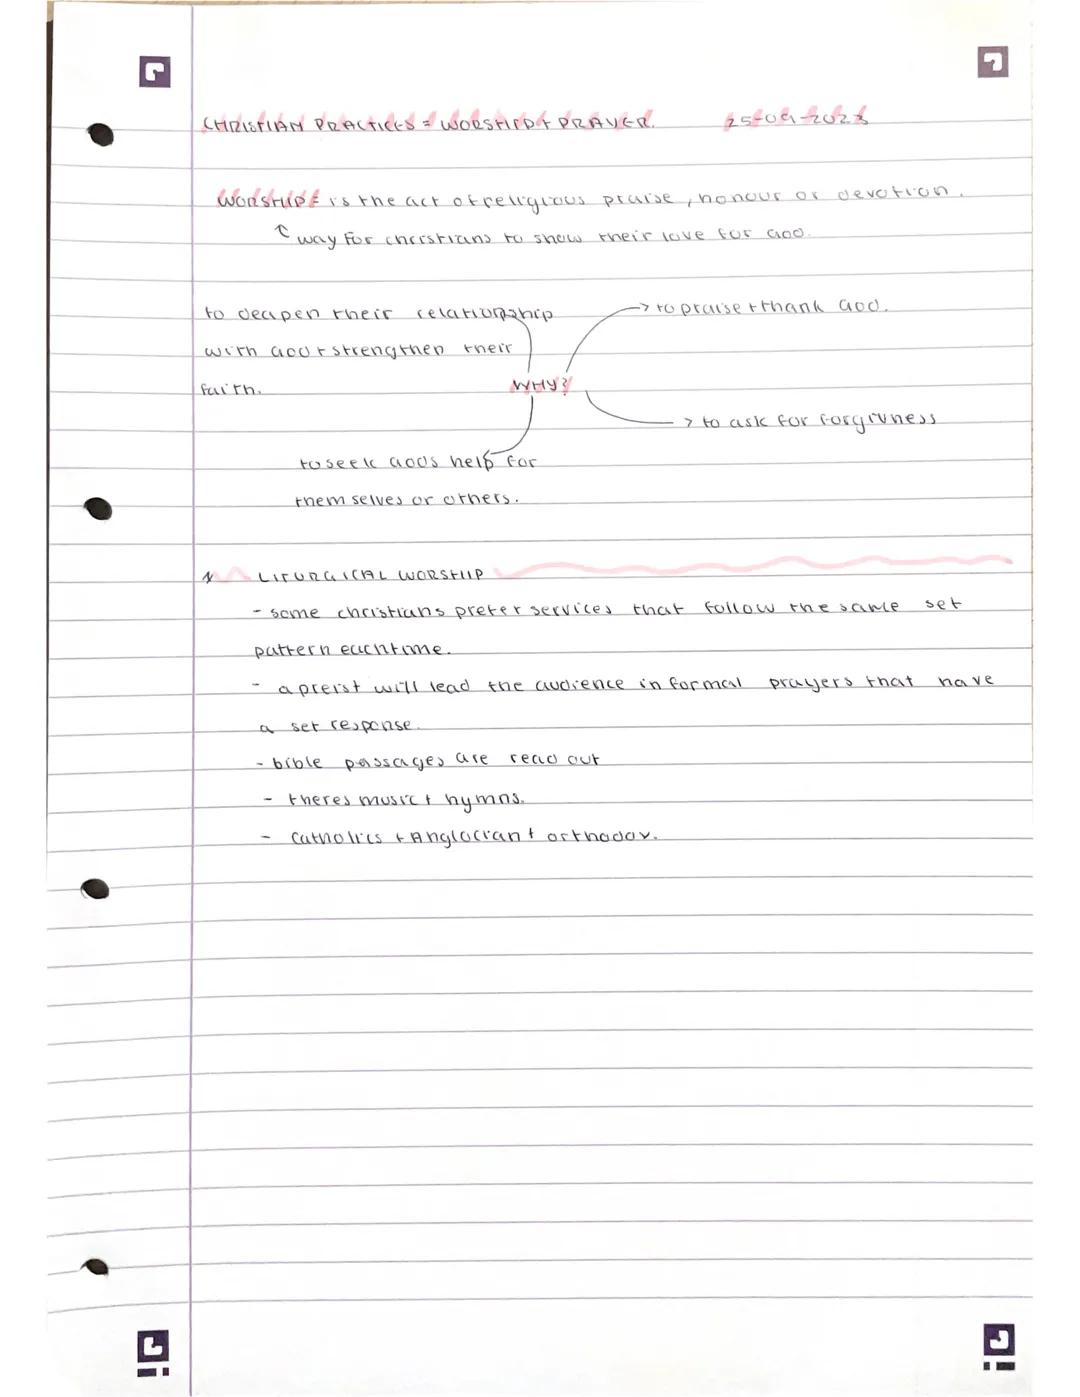 CHRISTIAN PRACTICES = WORSHIP + PRAYER. 25-09-2023
WORSHIP = is the act of religious praise, honour or devotion.
way for christians to show their love for GOD.
to deapen their relationship
with GOD + strengthen their
faith.
WHY?
→ to praise + thank GOD.
→ to ask for forgivness
to seek GODS help for
themselves or others.
LITURGICAL WORSHIP
- some christians prefer services that follow the same set
pattern each time.
- a preist will lead the audience in formal prayers that have
a set response.
- bible passages are read out
- theres music + hymns.
- Catholics + Anglocian + orthodox.